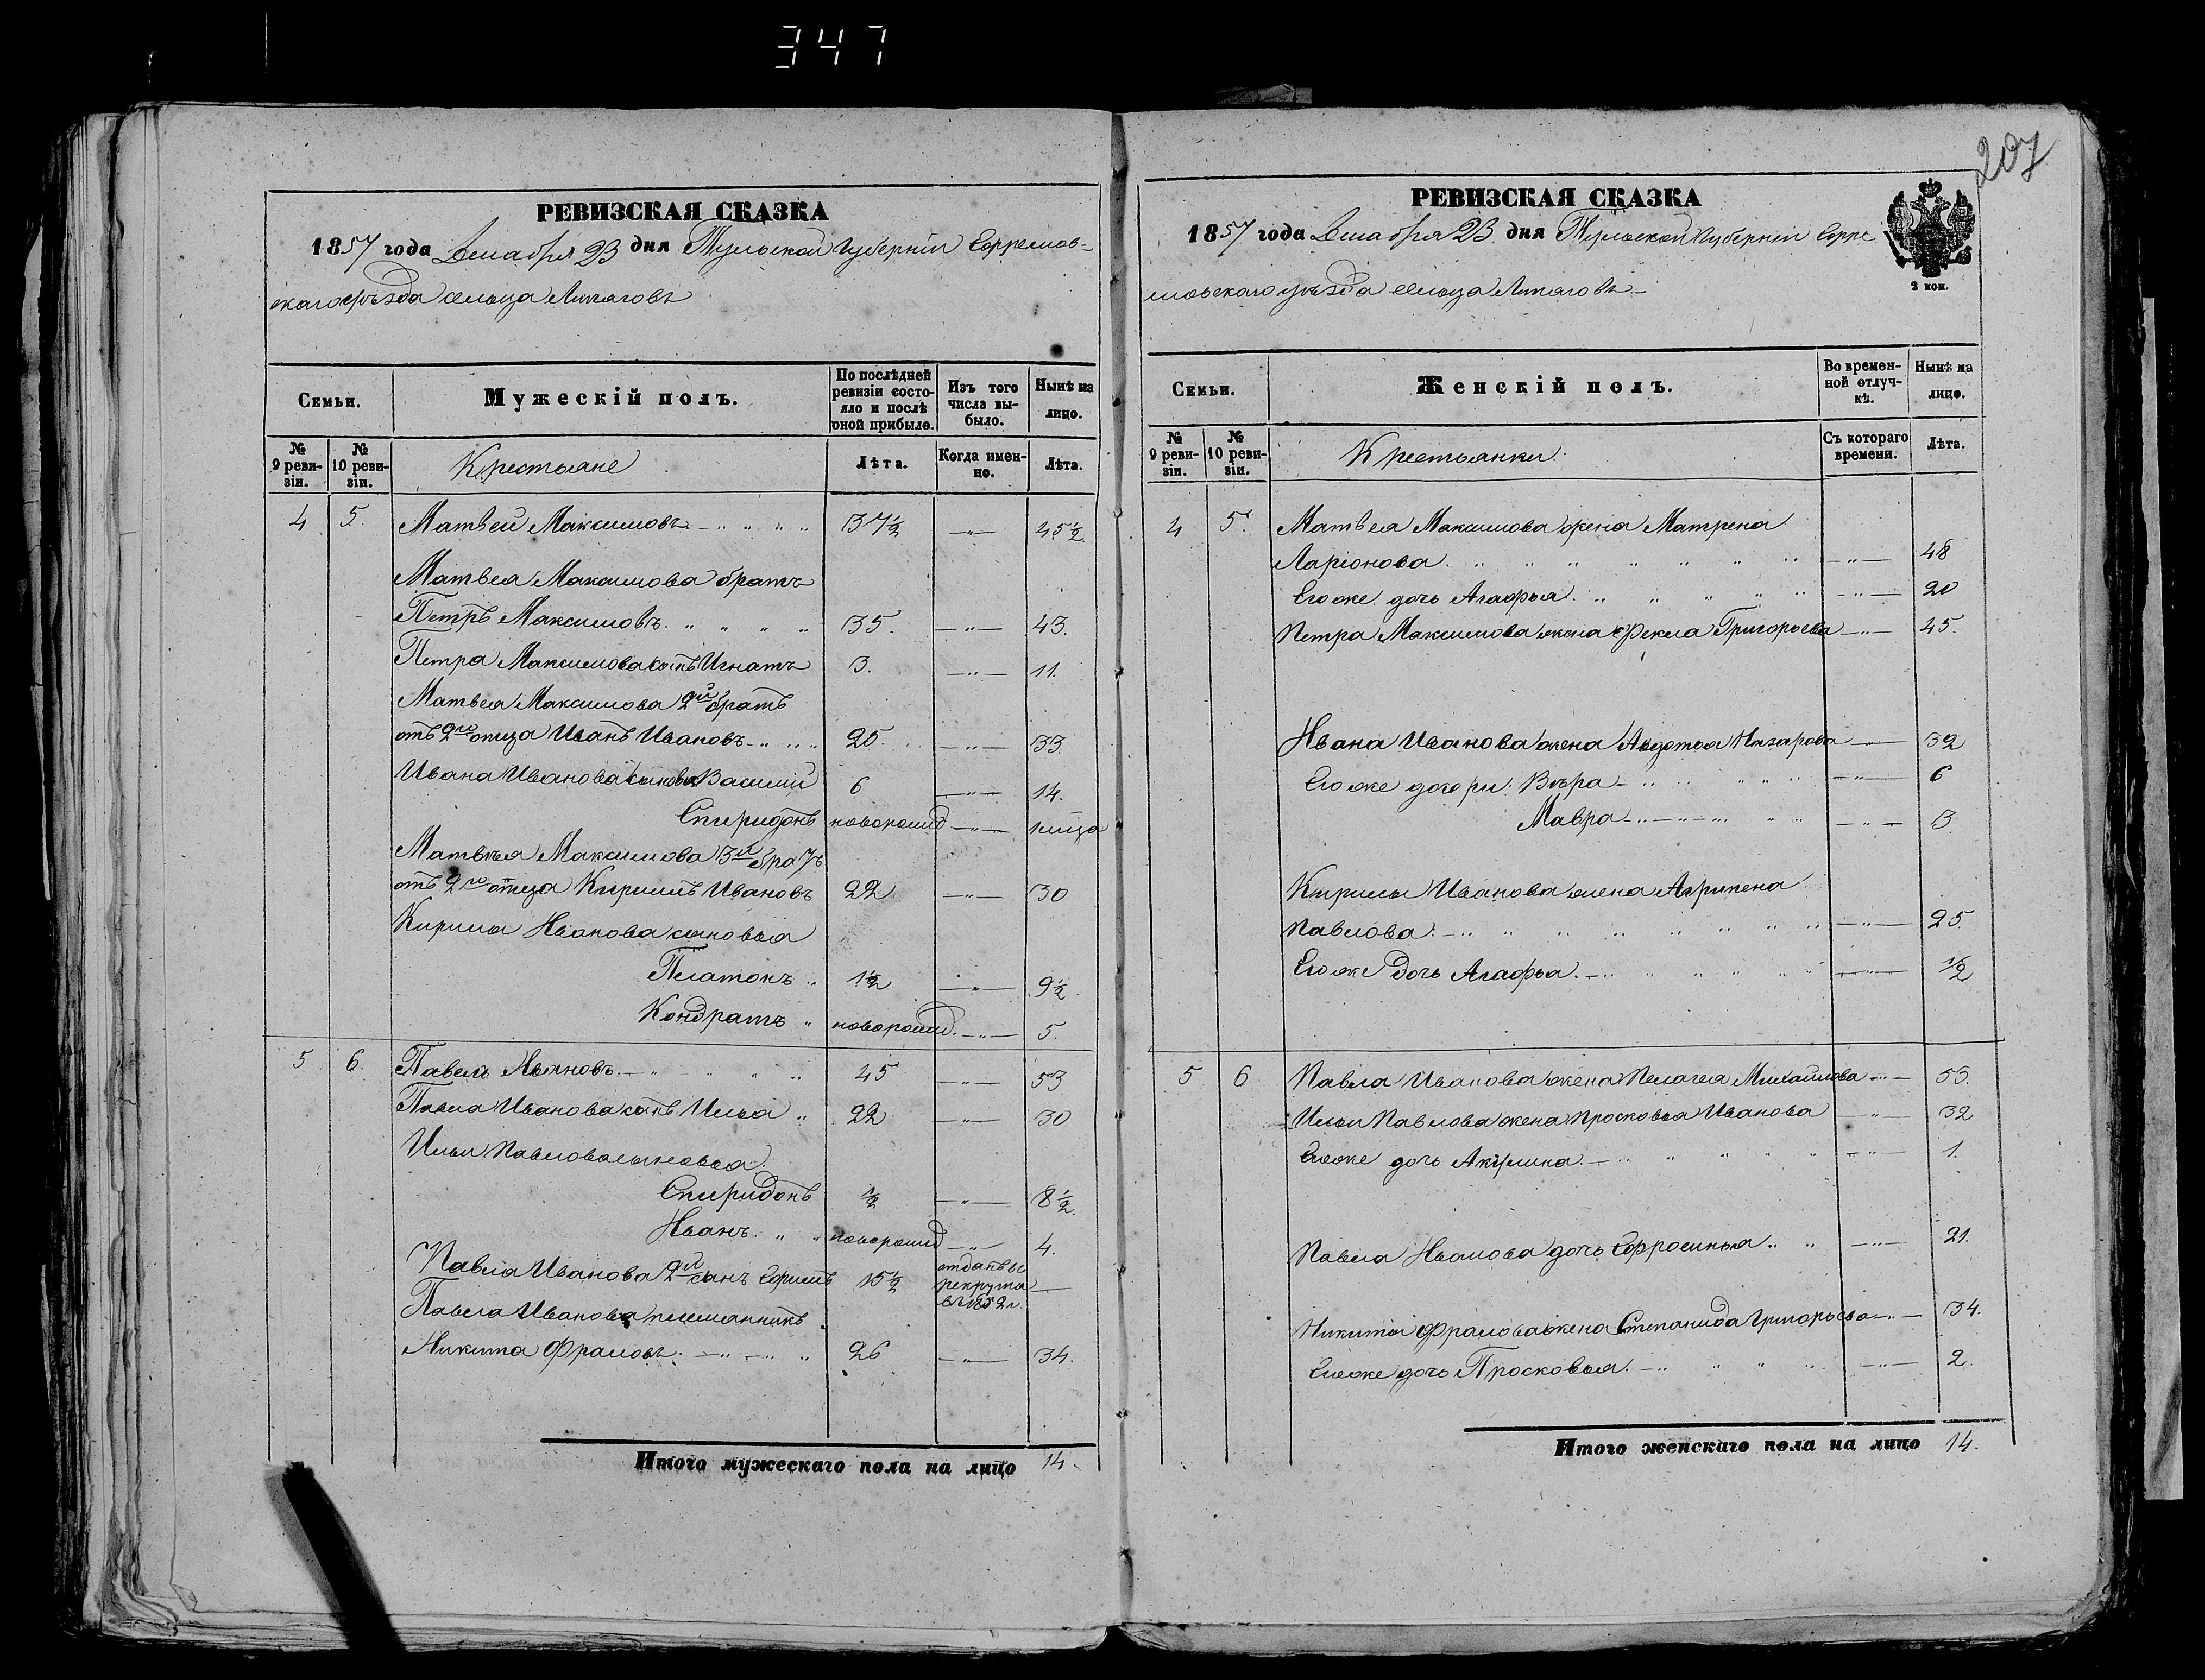 347
207
РЕВИЗСКАЯ СКАЗКА
1857 года Декабря 23 дня Тульской Губерніи Ефремов-
скаго уѣзда сельца
Семьи.
Мужескій полъ.
По послѣдней ревизіи состояло и послѣ оной прибыло.
Изъ того числа выбыло.
Нынѣ на лицо.
№ 9 ревизіи.
№ 10 ревизіи.
Крестьяне
Лѣта.
Когда именно.
Лѣта.
4 5. Матвей Максимовъ 37½ 45½
Матвея Максимова братъ
Петръ Максимовъ 35. 43.
Петра Максимова сынъ Игнатъ 3. 11.
Матвея Максимова 2й братъ
отъ 2го отца Иванъ Ивановъ 25. 33
Ивана Иванова сыновья Василий 6 14.
Спиридонъ новорожд
Матвѣя Максимова 3й братъ
отъ 2го отца Кирилъ Ивановъ 22 30
Кирилы Иванова сыновья
Платонъ 1½ 9½
Кондратъ новорожд. 5.
5 6 Павелъ Ивановъ 45 53
Павла Иванова сынъ Илья 22 30
Ильи Павлова сыновья
Спиридонъ ½ 8½
Иванъ новорожд 4.
Павла Иванова 2й сынъ 15½ отданъ въ рекрута въ 1852 г.
Павла Иванова племянникъ
Никита Фроловъ 26 34.
Итого мужескаго пола на лицо 14.
РЕВИЗСКАЯ СКАЗКА
1857 года Декабря 23 дня Тульской Губерніи Ефре
мовскаго уѣзда сельца
2 коп.
Семьи.
Женскій полъ.
Во временной отлучкѣ.
Нынѣ на лицо.
№ 9 ревизіи.
№ 10 ревизіи.
Крестьянки
Съ котораго времени.
Лѣта.
4 5. Матвея Максимова жена Матрена
Ларіонова. 48
Его же дочь Агафья. 20
Петра Максимова жена Фекла Григорьева 45.
Ивана Иванова жена Авдотья Назарова 32
Его же дочери: Вѣра 6
Мавра 3
Кирилы Иванова жена Агрипена
Павлова. 25.
Его же дочь Агафья. ½
5 6 Павла Иванова жена Пелагея Михайлова 53.
Ильи Павлова жена Просковья Иванова 32
Его же дочь Акулина. 1.
Павла Иванова дочь Ефросинья 21.
Никиты Фролова жена Степанида Григорьева 34.
Его же дочь Просковья. 2.
Итого женскаго пола на лицо 14.